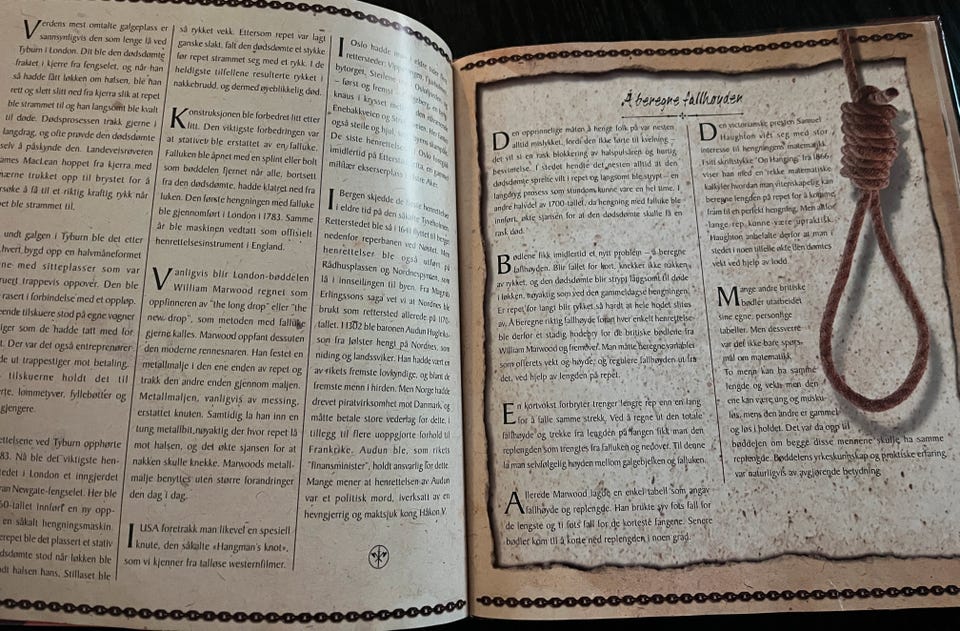 Verdens mest omtalte galgeplass er
sannsynligvis den som lenge lå ved
Tyburn i London. Dit ble den dødsdømte
fraktet i kjerre fra fengselet, og når han
så hadde fått løkken om halsen, ble han
rett og slett slitt ned fra kjerra slik at repet
ble strammet til og han langsomt ble kvalt
til døde. Dødsprosessen trakk gjerne i
langdrag, og ofte prøvde den dødsdømte
selv å påskynde den. Landeveisrøveren
James MacLean hoppet fra kjerra med
knærne trukket opp til brystet for å
få til et riktig kraftig rykk når
repet ble strammet til.
rundt galgen i Tyburn ble det etter
hvert bygd opp en halvmåneformet
med sitteplasser som var
trappevis oppover. Den ble
rasert i forbindelse med et oppløp.
tilskuere stod på egne vogner
som de hadde tatt med for
Der var det også entreprenører
ut trappestiger mot betaling.
tilskuerne holdt det til
lømmetyver, fyllebøtter og
ved Tyburn opphørte
Nå ble det viktigste
i London et inngjerdet
Newgate-fengselet. Her ble
innført en ny
en såkalt hengningsmaskin.
ble det plassert et stativ
stod når løkken ble
halsen hans. Stillaset ble
så rykket vekk. Ettersom repet var lagt
ganske slakt, falt den dødsdømte et stykke
før repet strammet seg med et rykk. I de
heldigste tilfellene resulterte rykket i
nakkebrudd, og dermed øyeblikkelig død.
Konstruksjonen ble forbedret litt etter
litt. Den viktigste forbedringen var
at stativet ble erstattet av en falluke.
Falluken ble åpnet med en splint eller bolt
som bøddelen fjernet når alle, bortsett
fra den dødsdømte, hadde klatret ned fra
luken. Den første hengningen med falluke
ble gjennomført i London i 1783. Samme
år ble maskinen vedtatt som offisielt
henrettelsesinstrument i England.
Vanligvis blir London-bøddelen
William Marwood regnet som
oppfinneren av "the long drop" eller "the
new drop", som metoden med falluke
gjerne kalles. Marwood oppfant dessuten
den moderne rennesnaren. Han festet en
metallmalje i den ene enden av repet og
trakk den andre enden gjennom maljen.
Metallmaljen, vanligvis av messing,
erstattet knuten. Samtidig la han inn en
tung metallbit nøyaktig der hvor repet lå
mot halsen, og det økte sjansen for at
nakken skulle knekke. Marwoods metall-
malje benyttes uten større forandringer
den dag i dag.
I USA foretrakk man likevel en spesiell
knute, den såkalte «Hangman's knot»,
som vi kjenner fra talløse westernfilmer.
I Oslo hadde
rettersteder:
bytorget, Steilene
– først og fremst
knaus i krysset
Enebakkveien og
også steile og hjul
De siste henrettelsene i Oslo foregikk
imidlertid på Etterstad, en gammel
militær ekserserplass i Østre Aker.
I Bergen skjedde de fleste henrettelsene
i eldre tid på den såkalte
Retterstedet ble så i 1641 flyttet til berget
nedenfor reperbanen ved Nøstet. Men
henrettelser ble også utført på
Rådhusplassen og Nordnespynten, som
lå i innseilingen til byen. Fra Magnus
Erlingssons saga vet vi at Nordnes ble
brukt som rettersted allerede på
tallet. I 1302 ble baronen Audun Hugleiks-
son fra Jølster hengt på Nordnes, som
niding og landssviker. Han hadde vært en
av rikets fremste lovkyndige, og blant de
fremste menn i hirden. Men Norge hadde
drevet piratvirksomhet mot Danmark, og
måtte betale store vederlag for dette, i
tillegg til flere uoppgjorte forhold til
Frankrike. Audun ble, som rikets
"finansminister", holdt ansvarlig for dette.
Mange mener at henrettelsen av Audun
var et politisk mord, iverksatt av en
hevngjerrig og maktsjuk kong Håkon V.
Å beregne fallhøyden
Den opprinnelige måten å henge folk på var nesten
alltid mislykket, fordi den ikke førte til kvelning –
det vil si en rask blokkering av halspulsåren og hurtig
bevisstløse. I stedet hendte det nesten alltid at den
dødsdømte sprelte vilt i repet og langsomt ble strypt – en
langdryg prosess som stundom kunne vare en hel time. I
andre halvdel av 1700-tallet, da hengning med falluke ble
innført, økte sjansen for at den dødsdømte skulle få en
rask død.
Bødlene fikk imidlertid et nytt problem – å beregne
fallhøyden. Blir fallet for kort, knekker ikke nakken
av rykket, og den dødsdømte blir strypt langsomt til døde
i løkken, nøyaktig som ved den gammeldagse hengningen.
Er repet for langt blir rykket så hardt at hele hodet slites
av. Å beregne riktig fallhøyde foran hver enkelt henrettelse
ble derfor et stadig hodebry for de britiske bødlene fra
William Marwood og fremover. Man måtte beregne variabler
som offerets vekt og høyde, og regulere fallhøyden ut fra
det, ved hjelp av lengden på repet.
En kortvokst forbryter trenger lengre rep enn en lang
for å falle samme strekk. Ved å regne ut den totale
fallhøyde og trekke fra lengden på fangen fikk man den
replengden som trengtes fra falluken og nedover. Til denne
la man selvfølgelig høyden mellom galgebjelken og falluken.
Allerede Marwood lagde en enkel tabell som angav
fallhøyde og replengde. Han brukte syv fots fall for
de lengste og ti fots fall for de korteste fangene. Senere
bødler kom til å korte ned replengden i noen grad.
Den victorianske presten Samuel
Haughton viet seg med stor
interesse til hengningens matematikk.
I sitt skriftstykke "On Hanging" fra 1866
viser han med en rekke matematiske
kalkyler hvordan man vitenskapelig kan
beregne lengden på repet for å komme
fram til en perfekt hengning. Men altfor
lange rep kunne være upraktisk.
Haughton anbefalte derfor at man i
stedet i noen tilfelle økte den dømtes
vekt ved hjelp av lodd.
Mange andre britiske
bødler utarbeidet
sine egne, personlige
tabeller. Men dessverre
var det ikke bare spørs-
mål om matematikk.
To menn kan ha samme
lengde og vekt, men den
ene kan være ung og musku-
løs, mens den andre er gammel
og løs i holdet. Det var da opp til
bøddelen om begge disse mennene skulle ha samme
replengde. Bøddelens yrkeskunnskap og praktiske erfaring
var naturligvis av avgjørende betydning.